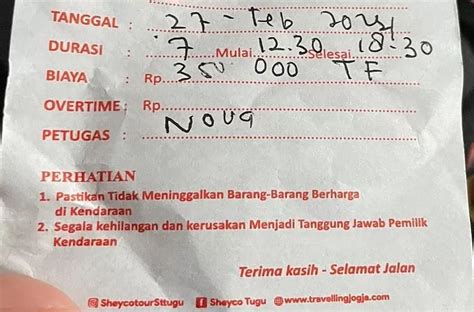 TANGGAL : 27 - Feb 2024
DURASI : 7 Mulai 12.30 Selesai 18.30
BIAYA : Rp. 350 000 TF
OVERTIME : Rp.
PETUGAS : NOVA
PERHATIAN
1. Pastikan Tidak Meninggalkan Barang-Barang Berharga
di Kendaraan
2. Segala kehilangan dan kerusakan Menjadi Tanggung Jawab Pemilik
Kendaraan
Terima kasih - Selamat Jalan
SheycotourSttugu Sheyco Tugu www.travellingjogja.com